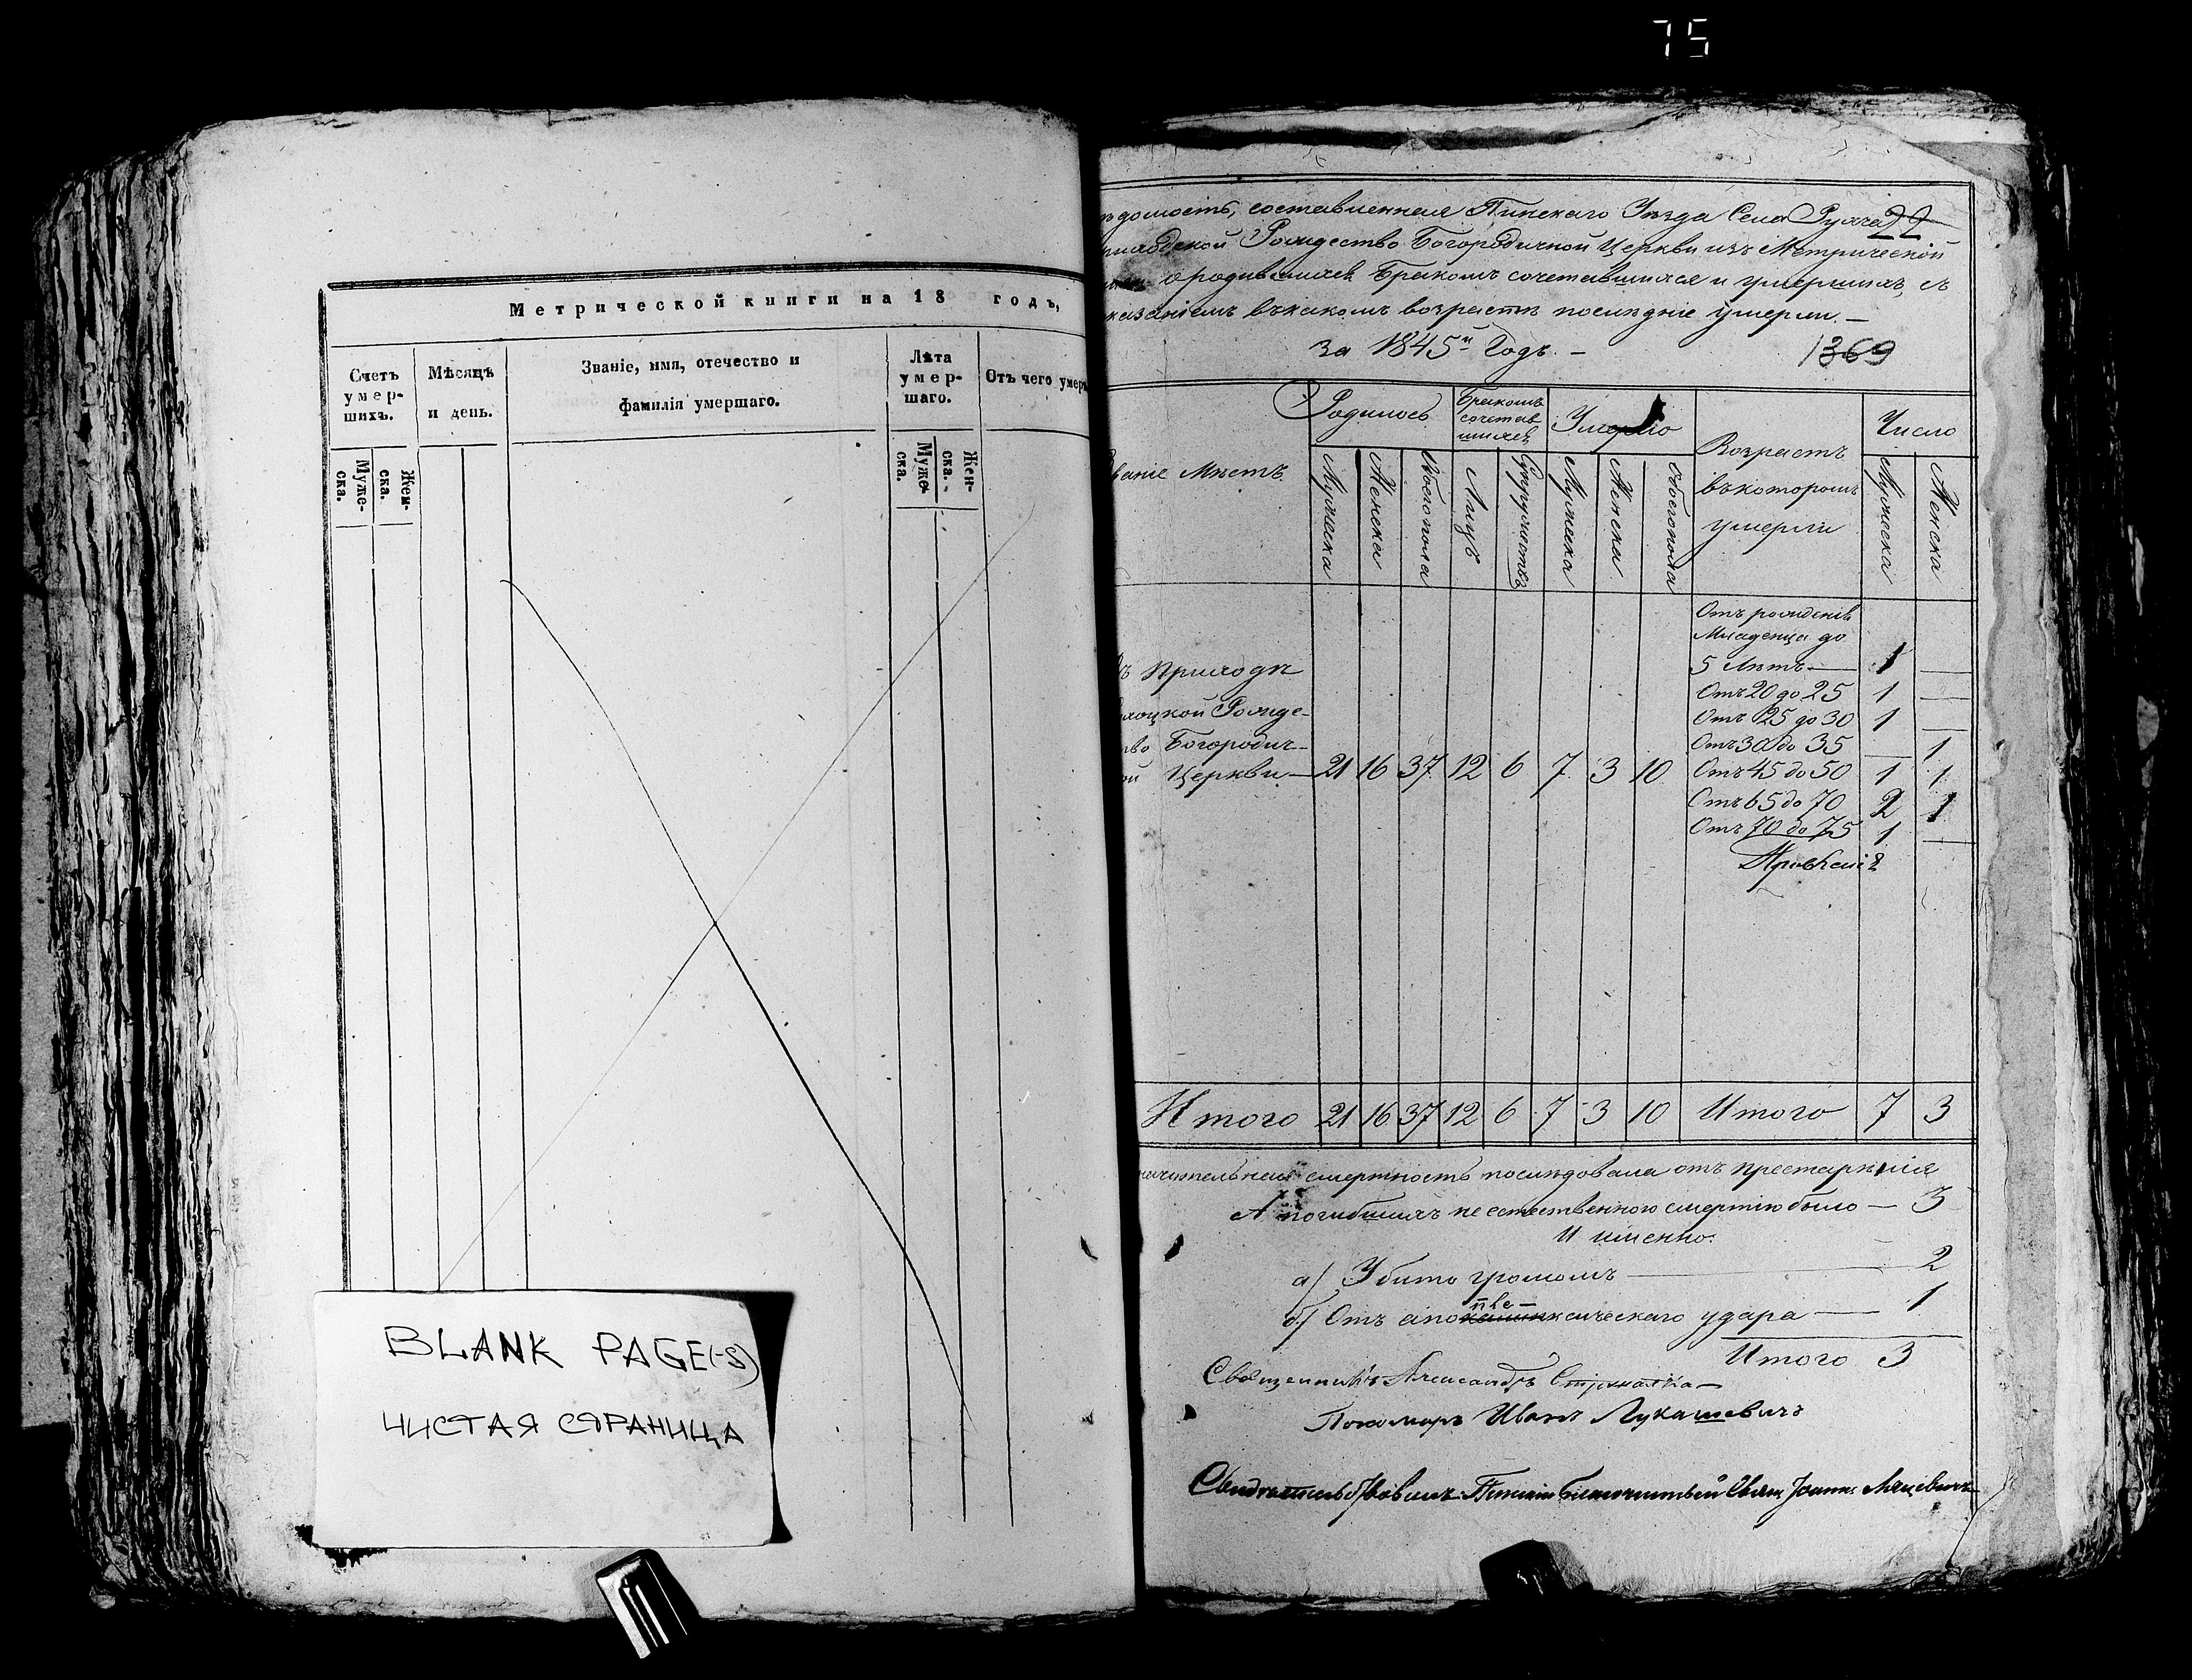 75
Метрической книги на 18 годъ,
Счетъ умер-шихъ.
Мѣсяцъ и день.
Званіе, имя, отечество и
фамилія умершаго.
Лѣта умер-шаго.
Отъ чего умер
Муже-ска.
Жен-ска.
Муже-ска.
Жен-ска.
BLANK PAGE(-S)
ЧИСТАЯ СТРАНИЦА
домость, составленная Пинскаго Уѣзда Села
Рождество Богородичной Церкви изъ Метрической
о родившихся Бракомъ сочетавшихся и умершихъ, съ
казаніемъ въ какомъ возрастѣ послѣдніе умерли. —
за 1845й Годъ. —
1369
ваніе Мѣстъ
Родилось
Бракомъ
сочетав
шихся
Умерло
Возрастъ
въ которомъ
умерли
Число
Мужеска
Женска
Обоего пола
Лицъ
Супружествъ
Мужеска
Женска
Обоего пола
Мужеска
Женска
Отъ рожденія
Младенца до
5 Лѣтъ — 1 —
Отъ 20 до 25 1 —
Отъ 25 до 30 1 —
Отъ 30 до 35 — 1
Отъ 45 до 50 1 1
Отъ 65 до 70 2 1
Отъ 70 до 75 1 —
Приходѣ
Рожде-
Богородич-
Церкви — 21 16 37 12 6 7 3 10
Итого 21 16 37 12 6 7 3 10 Итого 7 3
смертность послѣдовала отъ престарѣлія
А погибшихъ не естественною смертію было — 3
И именно:
а) Убито громомъ — 2
пле-
б) Отъ апо ксическаго удара — 1
Итого 3
Священникъ Александръ
Пономарь Иванъ Лукашевичъ